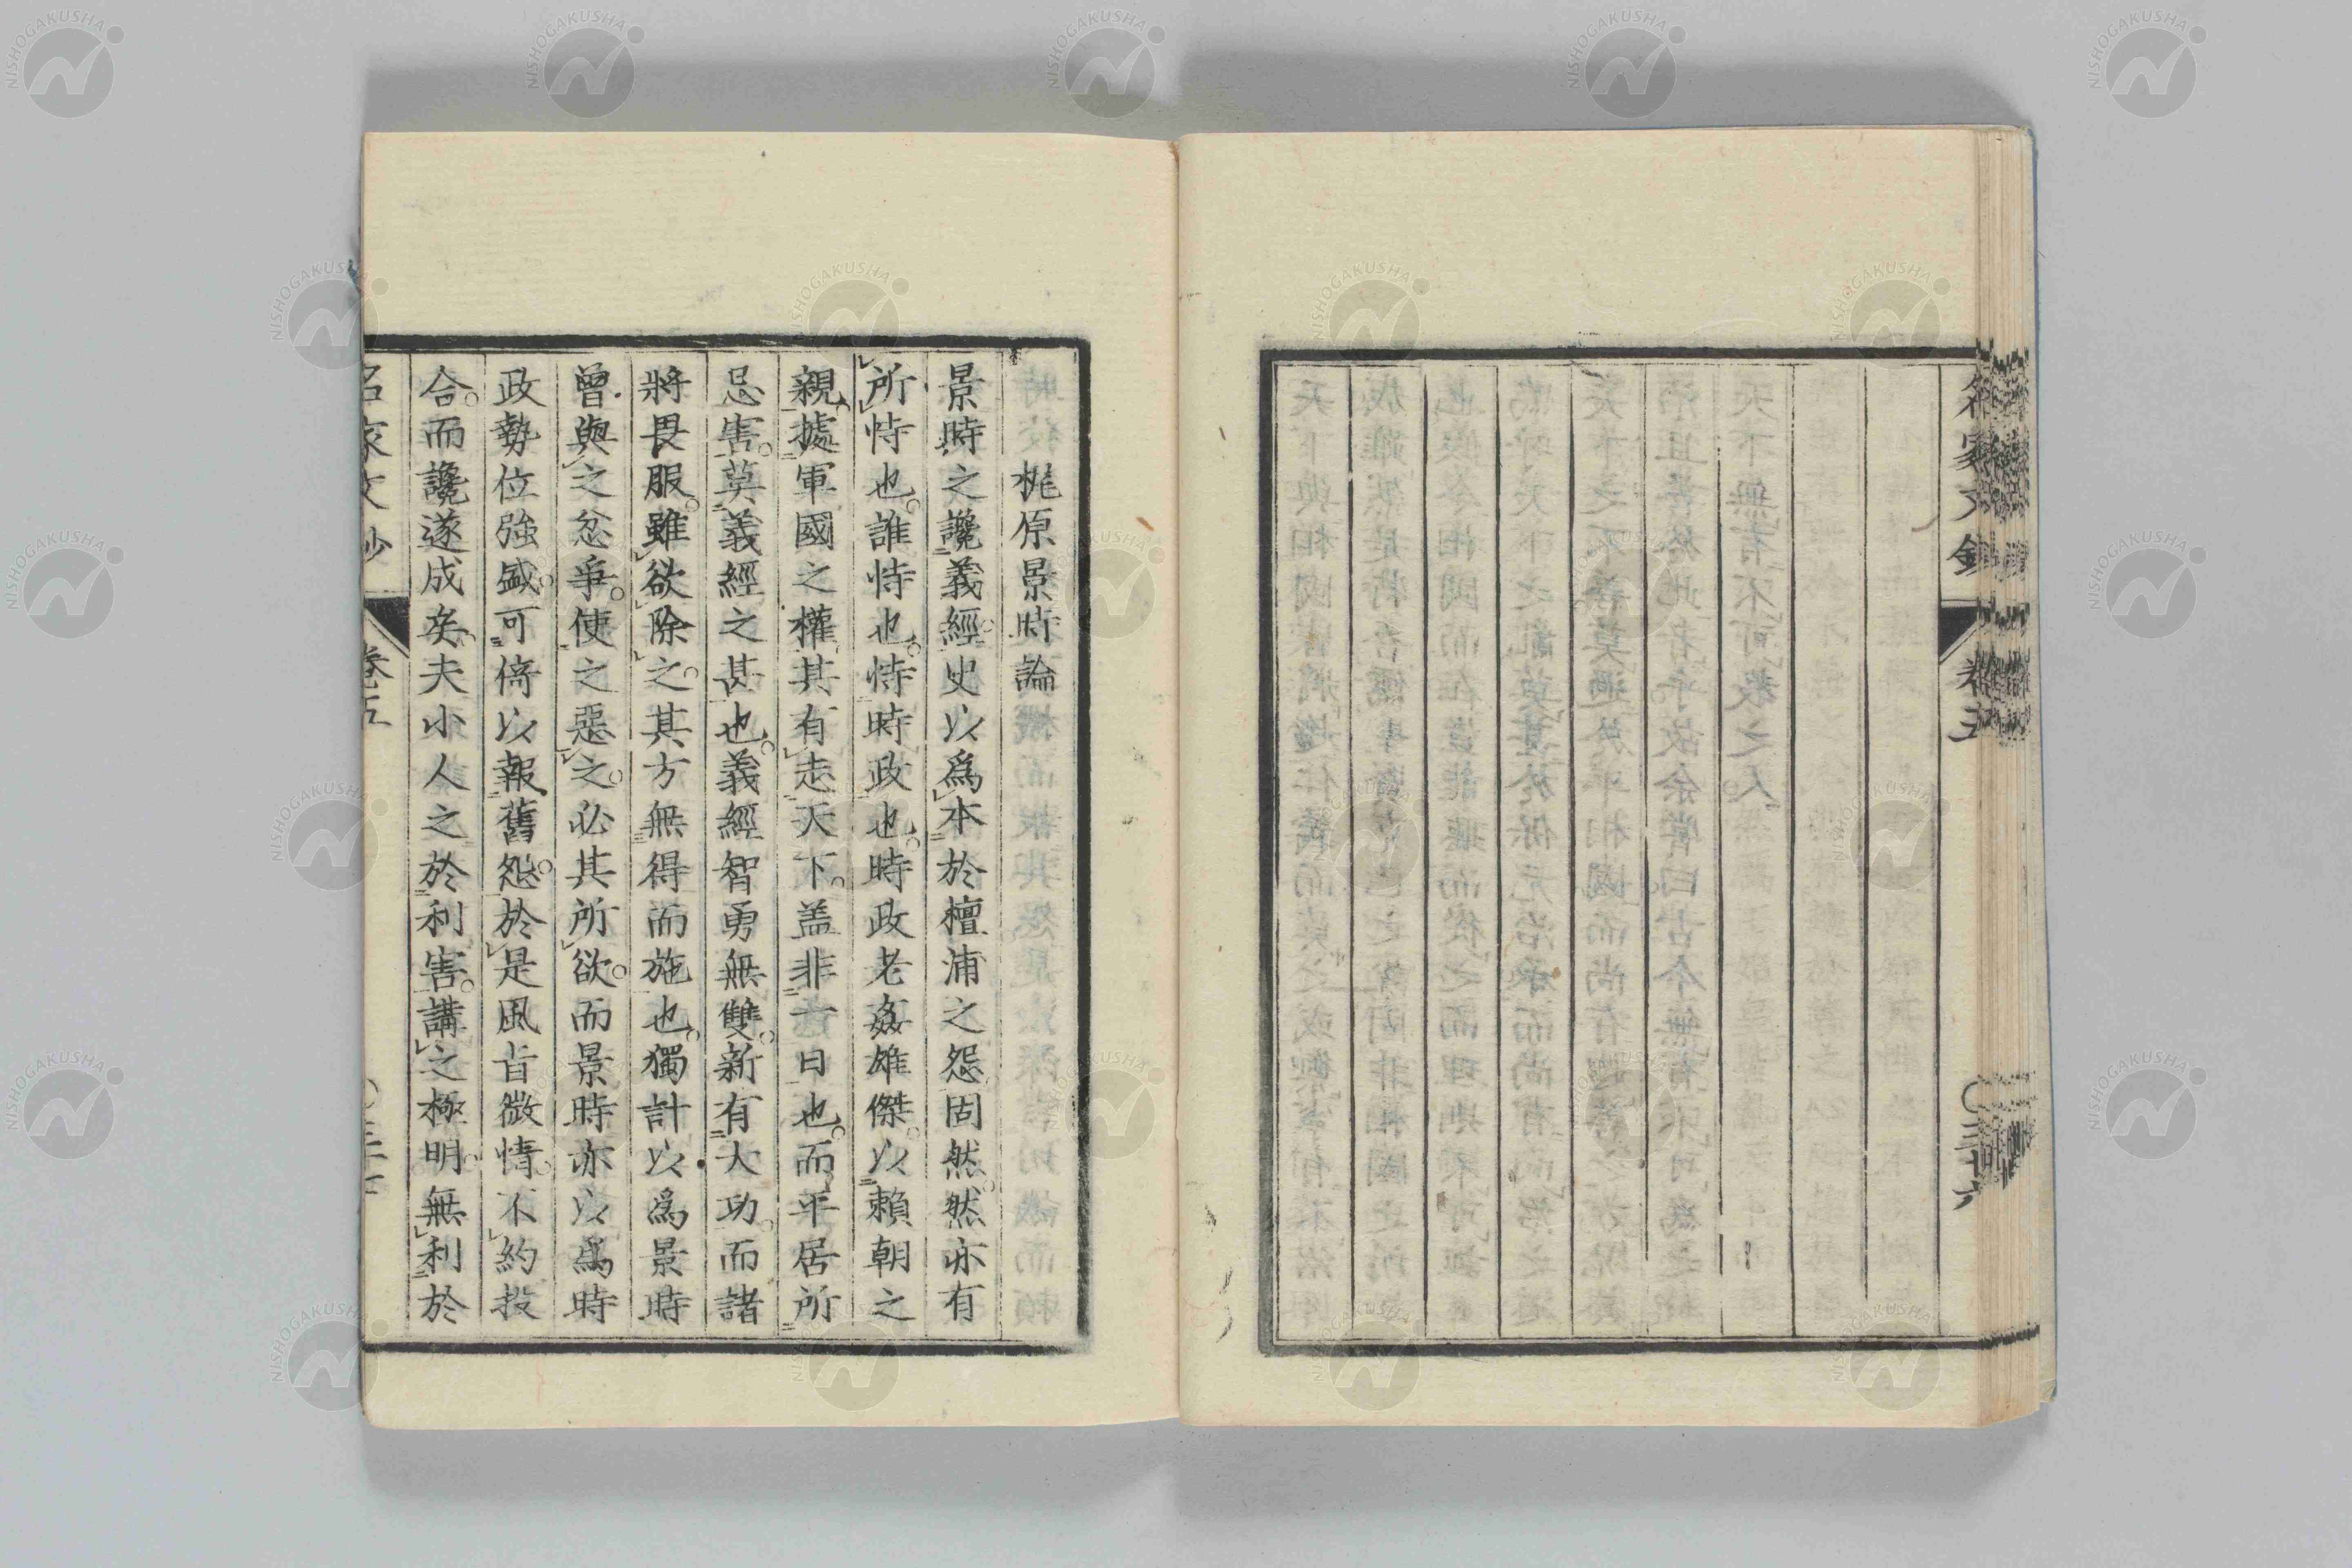 名家文鈔
卷五
〇三十六
梶原景時論
景時之讒義經史以爲本於檀浦之怨固然然亦有
所恃也誰恃也恃時政也時政老姦雄傑以賴朝之
親據軍國之權其有走天下盖非一日也而平居所
忌害莫義經之甚也義經智勇無雙新有大功而諸
將畏服雖欲除之其方無得而施也獨計以爲景時
曾與之忿爭使之惡之必其所欲而景時亦以爲時
政勢位強盛可倚以報舊怨於是風旨微情不約投
合而讒遂成矣夫小人之於利害講之極明無利於
名家文鈔
卷五
NISHOGAKUSHA